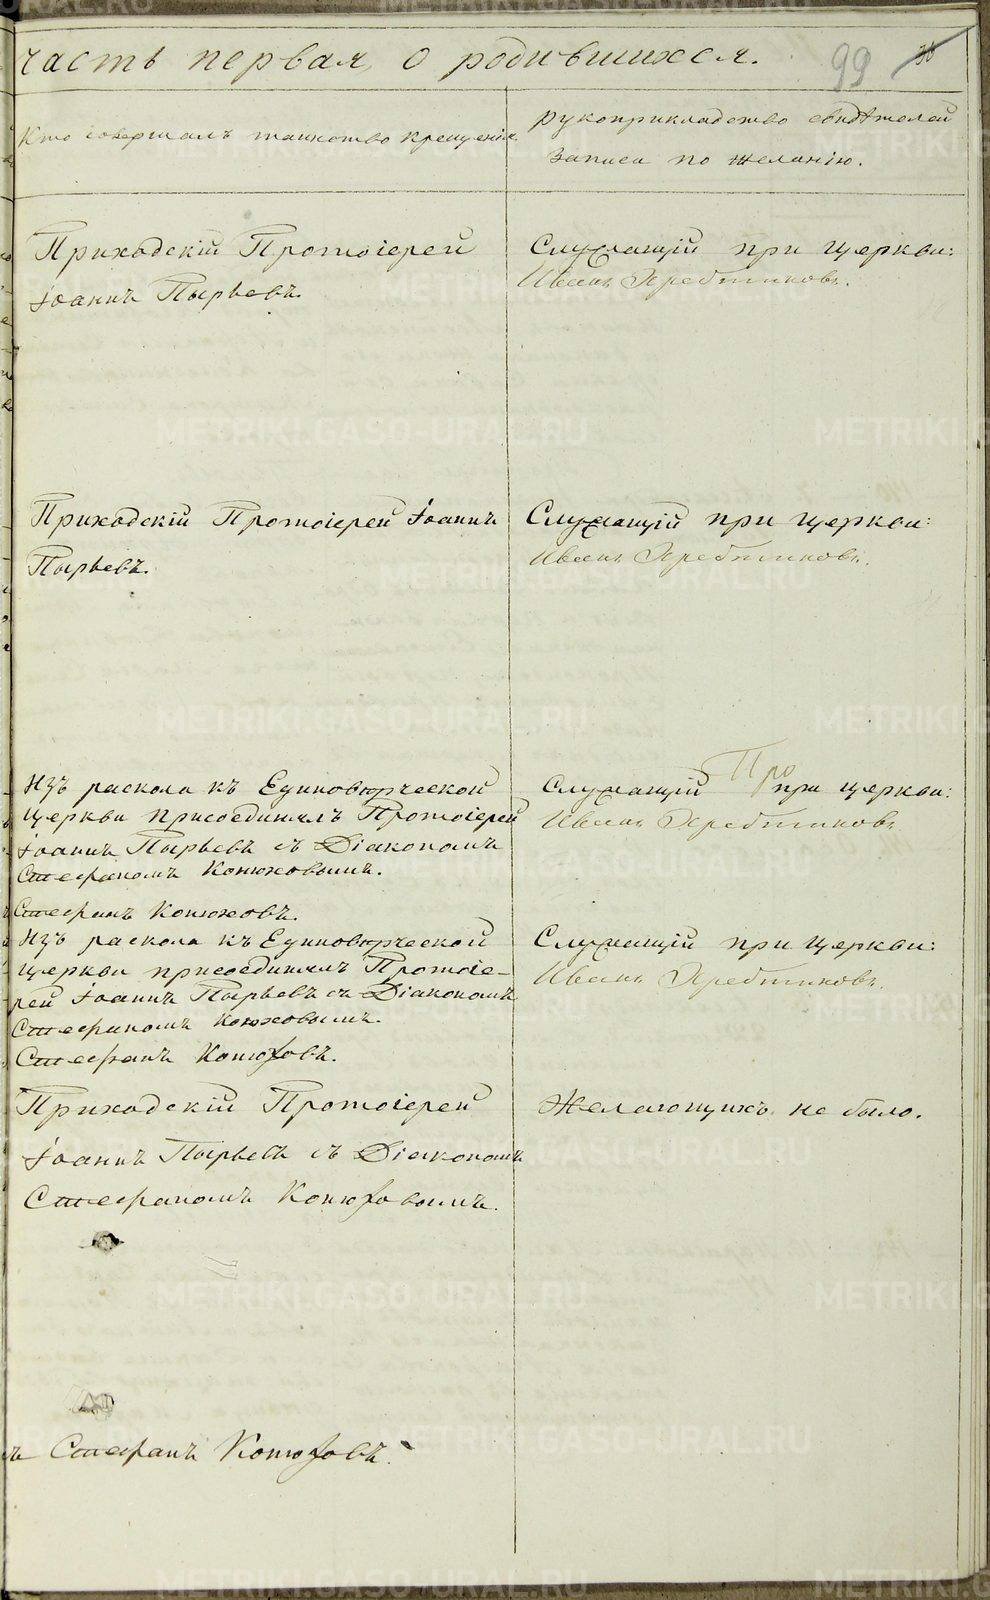 часть первая о родившихся.
99
38
Кто совершалъ таинство крещенія.
рукоприкладство свидѣтелей
записи по желанію.
Приходскій Протоіерей
Іоаннъ Пырьевъ.
Служащій при церкви:
Иванъ
Приходскій Протоіерей Іоаннъ
Пырьевъ.
Служащій при церкви:
Иванъ
Изъ раскола къ Единовѣрческой
церкви присоединялъ Протоіерей
Іоаннъ Пырьевъ съ Діакономъ
Стефаномъ Конюховымъ.
Стефанъ Конюховъ.
Про
Служащій при церкви:
Иванъ
Изъ раскола къ Единовѣрческой
церкви присоединялъ Протоіе-
рей Іоаннъ Пырьевъ съ Діакономъ
Стефаномъ Конюховымъ.
Стефанъ Конюховъ.
Служащій при церкви:
Иванъ
Приходскій Протоіерей
Іоаннъ Пырьевъ съ Діакономъ
Стефаномъ Конюховымъ.
Желающихъ не было.
Стефанъ Конюховъ.
METRIKI.GASO-URAL.RU